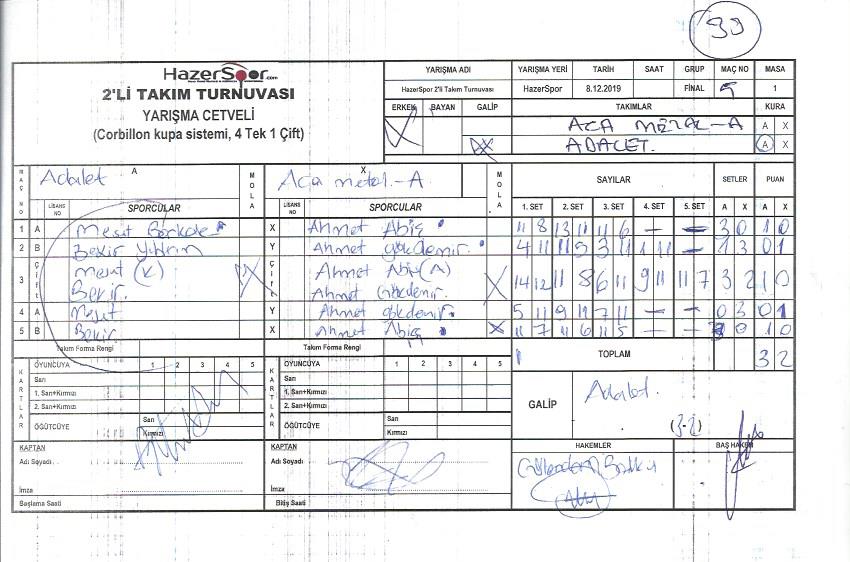 99
HazerSpor.com
2'Lİ TAKIM TURNUVASI
YARIŞMA CETVELİ
(Corbillon kupa sistemi, 4 Tek 1 Çift)
YARIŞMA ADI YARIŞMA YERİ TARİH SAAT GRUP MAÇ NO MASA
HazerSpor 2'li Takım Turnuvası HazerSpor 8.12.2019 FİNAL 5 1
ERKEK BAYAN GALİP TAKIMLAR KURA
X ACA METAL-A A X
X ADALET. A X
MAÇ NO Adalet A MOLA Aca metal-A X MOLA SAYILAR SETLER PUAN
LİSANS NO SPORCULAR LİSANS NO SPORCULAR 1. SET 2. SET 3. SET 4. SET 5. SET A X A X
1 A Mesut X Ahmet Abiç 11 8 13 11 11 6 – – 3 0 1 0
2 B Bekir Yıldırım Y Ahmet Gökdemir. 4 11 11 5 3 11 – 1 3 0 1
3 Çift Mesut (K) X Çift Ahmet Abiç (A) X 14 12 11 8 6 11 9 11 11 7 3 2 1 0
Bekir. Ahmet Gökdemir.
4 A Mesut Y Ahmet Gökdemir. 5 11 9 11 7 11 – – 0 3 0 1
5 B Bekir X Ahmet Abiç X 11 7 11 6 11 5 – – 3 0 1 0
Takım Forma Rengi Takım Forma Rengi TOPLAM 3 2
KARTLAR OYUNCUYA 1 2 3 4 5 KARTLAR OYUNCUYA 1 2 3 4 5
Sarı Sarı
1. Sarı+Kırmızı 1. Sarı+Kırmızı
2. Sarı+Kırmızı 2. Sarı+Kırmızı
GALİP Adalet.
(3-2)
ÖĞÜTCÜYE Sarı ÖĞÜTCÜYE Sarı
Kırmızı Kırmızı
KAPTAN KAPTAN HAKEMLER BAŞ HAKEM
Adı Soyadı Adı Soyadı
İmza İmza
Başlama Saati Bitiş Saati